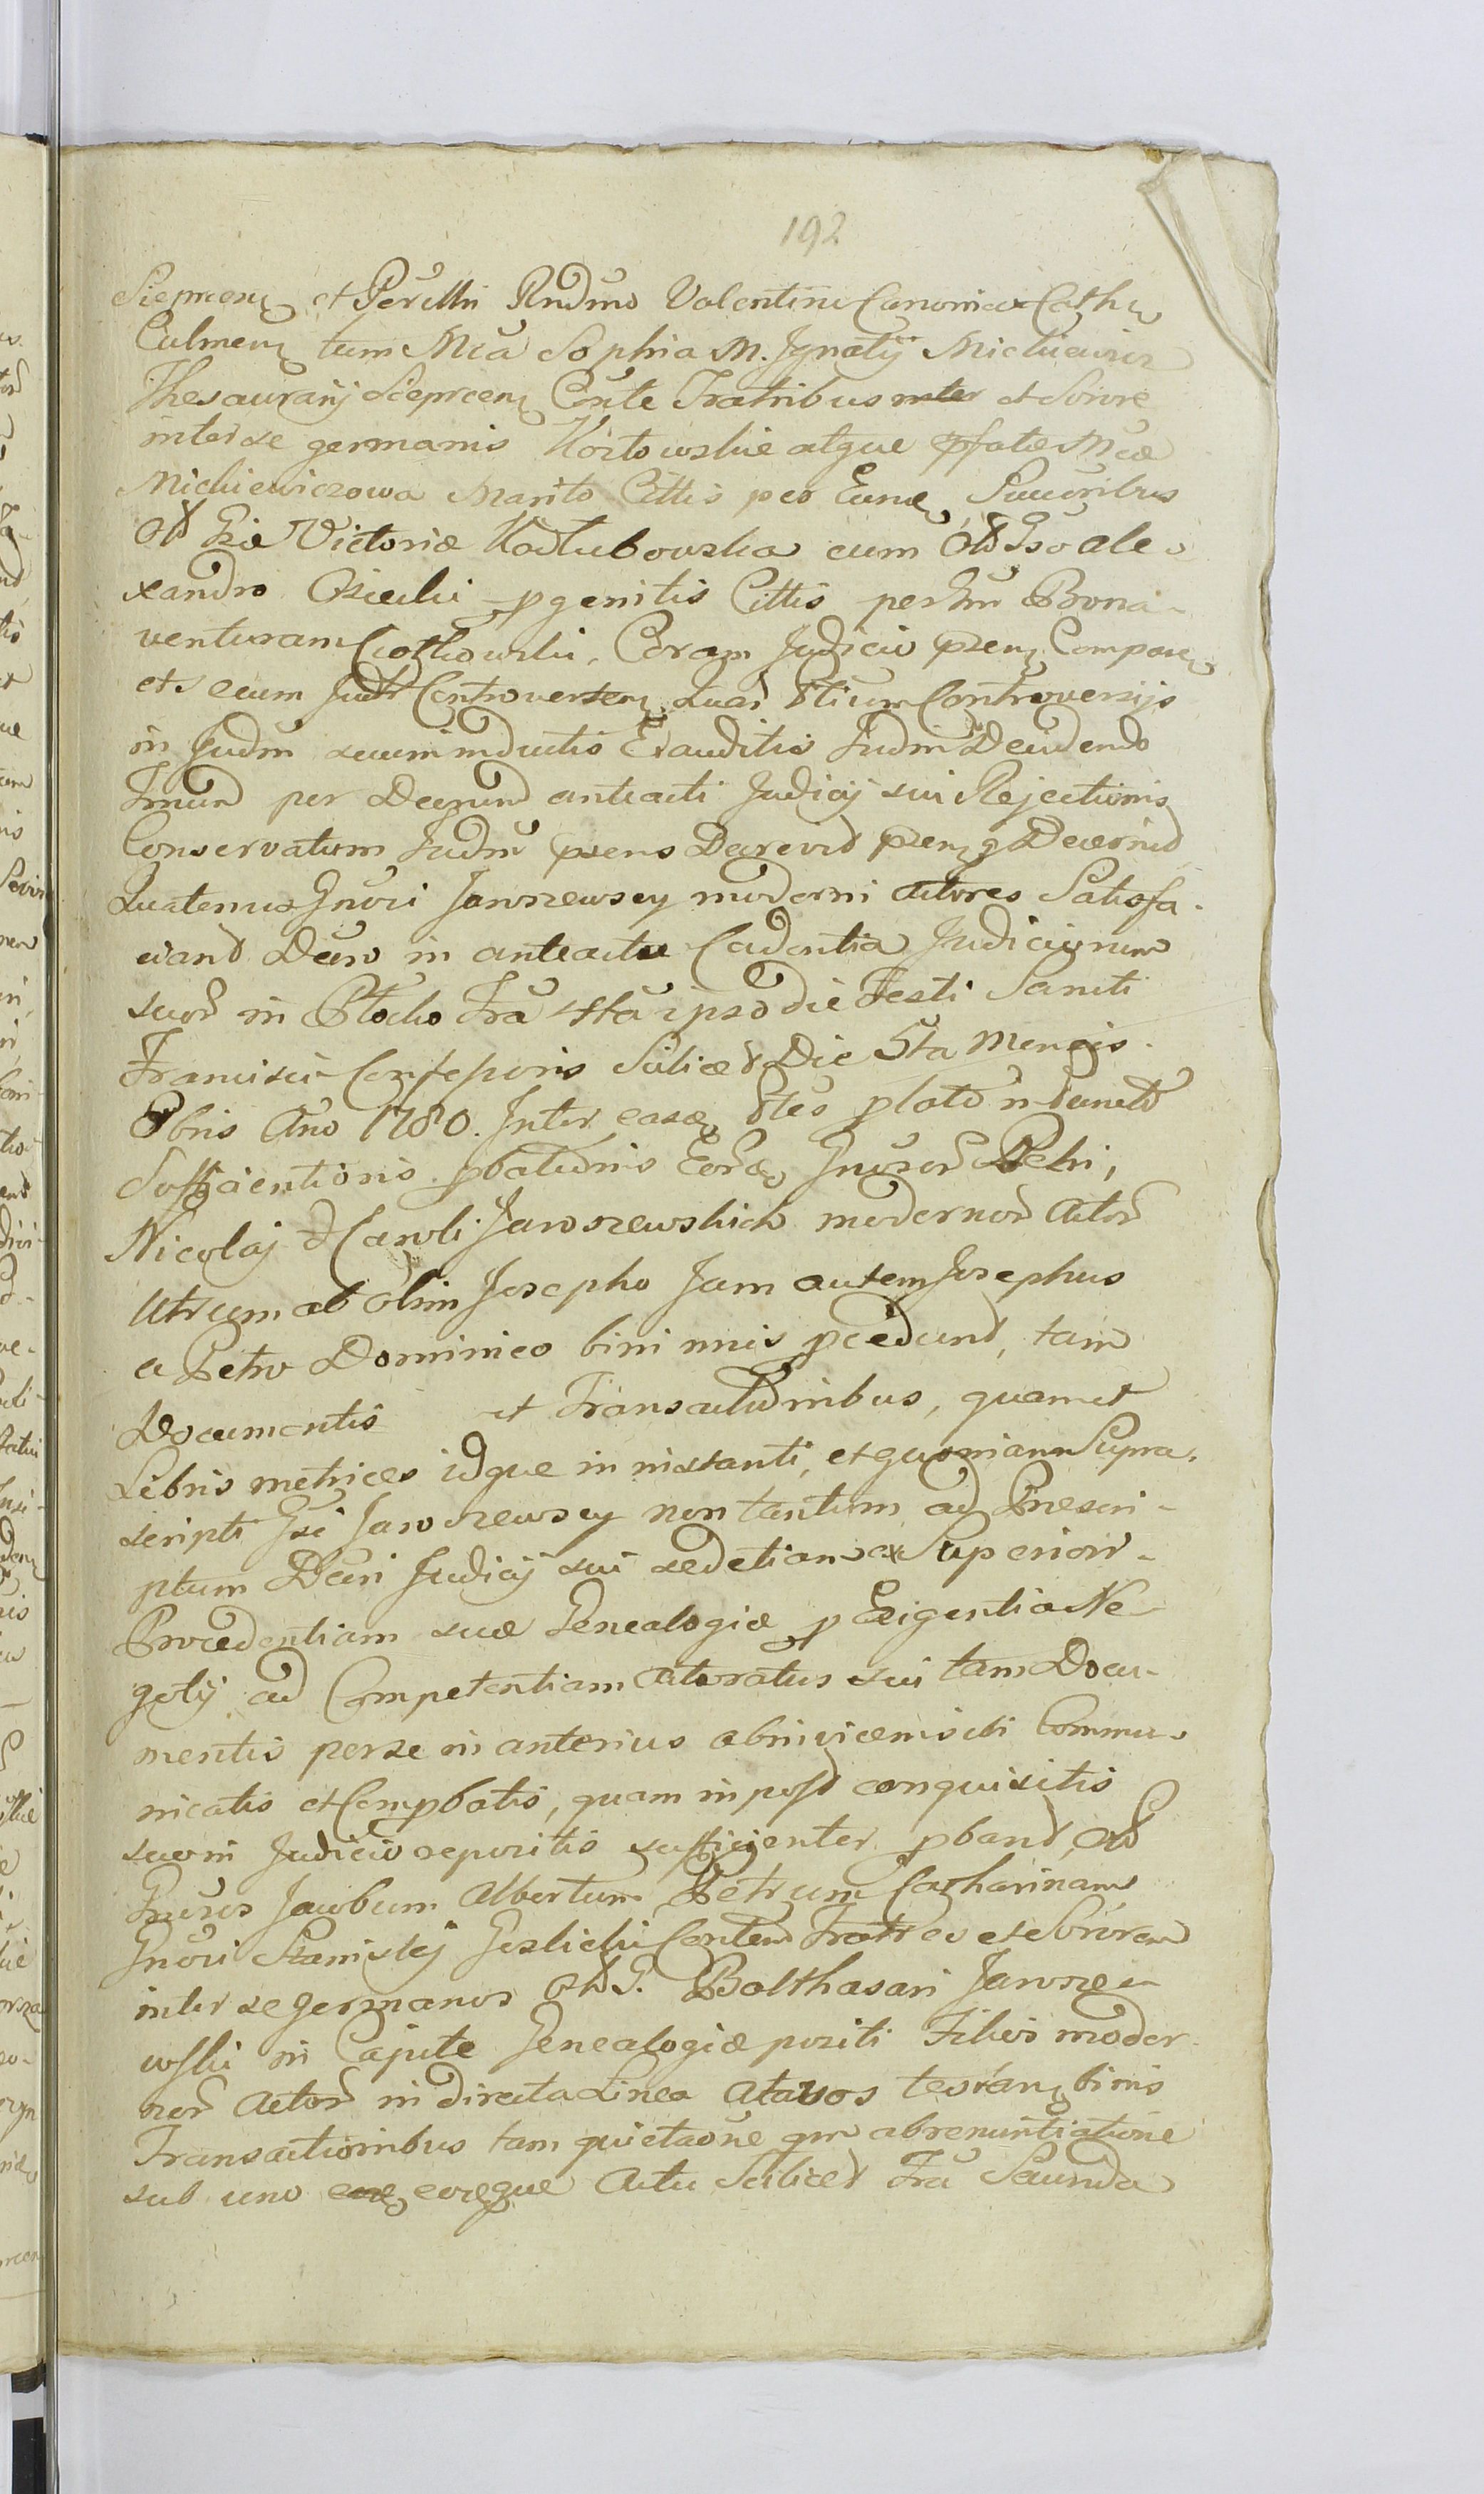 192
Sieprcen et Perillri Rndmo Valentini Canonico Cath
Culmen tum Mca Sophia M. Ignatij Mickiewicz
Thesaurarij Sieprcen Conte Fratribus et Sorore
inter se germanis Kozłowskie atque pfatæ Mcæ
Mickiewiczowa Marito Cittis pro Eun Successoribus
Old Gsæ Victoriæ Kadłubowska cum Old Gso Ale-
xandro pgenitis Cittis per Gsm Bona-
venturam Ciołkowski, Coram Judicio psen Compar
et secum Jndr Controverten. Quar Ptium Controversijs
in Judm suum inductis Exauditis Judm Decidendo
Tmum per Decrum anteacti Judicij sui Rejectionis
Conservatum Judm psens Decrevit psenq Decernit
Quatenus Gnosi Jaroszewscy moderni Actores Satisfa-
ciant Decro in anteacta Cadentia Judiciorum
suor in Płocko Fra 4ta ipso die Festi Sancti
Francisci Confessoris Scilicet Die 5ta Mensis
8bris Ano 1780. Inter easd Ptes plato
Sufficientioris pbationis Eor Gnosor Petri,
Nicolaj & Caroli Jaroszewskich modernor Actor
Utrum ab olim Josepho Jam autem Josephus
a Petro Dominico bini nnis pcedunt, tam
Documentis et Transactionibus, quam et
Libris metrices idque in instanti, et quoniam Supra-
scripti Gsi Jaroszewscy non tantum ad Præscri-
ptum Decri Judicij sui sed etiam ex Superiori
Procedentiam suæ Genealogiæ p Exigentia Ne-
gotij ad Competentiam Actoratus sui tam Docu-
mentis per se in anterius abinvicem sibi Commu-
nicatis et Compbatis, quam in post conquisitis
suo in Judicio repositis sufficienter pbant, Old
Gnosos Jacobum Albertum Petrum Catharinam
Gnosi Stanislaj Goslicki Conten Fratres et Sororem
inter se germanos Old G. Balthasari Jarosze-
wski in Capite Genealogiæ positi Filios moder-
nor Actor in directa Linea Atavos testan binis
Transactionibus tam quietaone qm abrenuntiatione
sub uno eoreque Actu Scilicet Fra Secunda